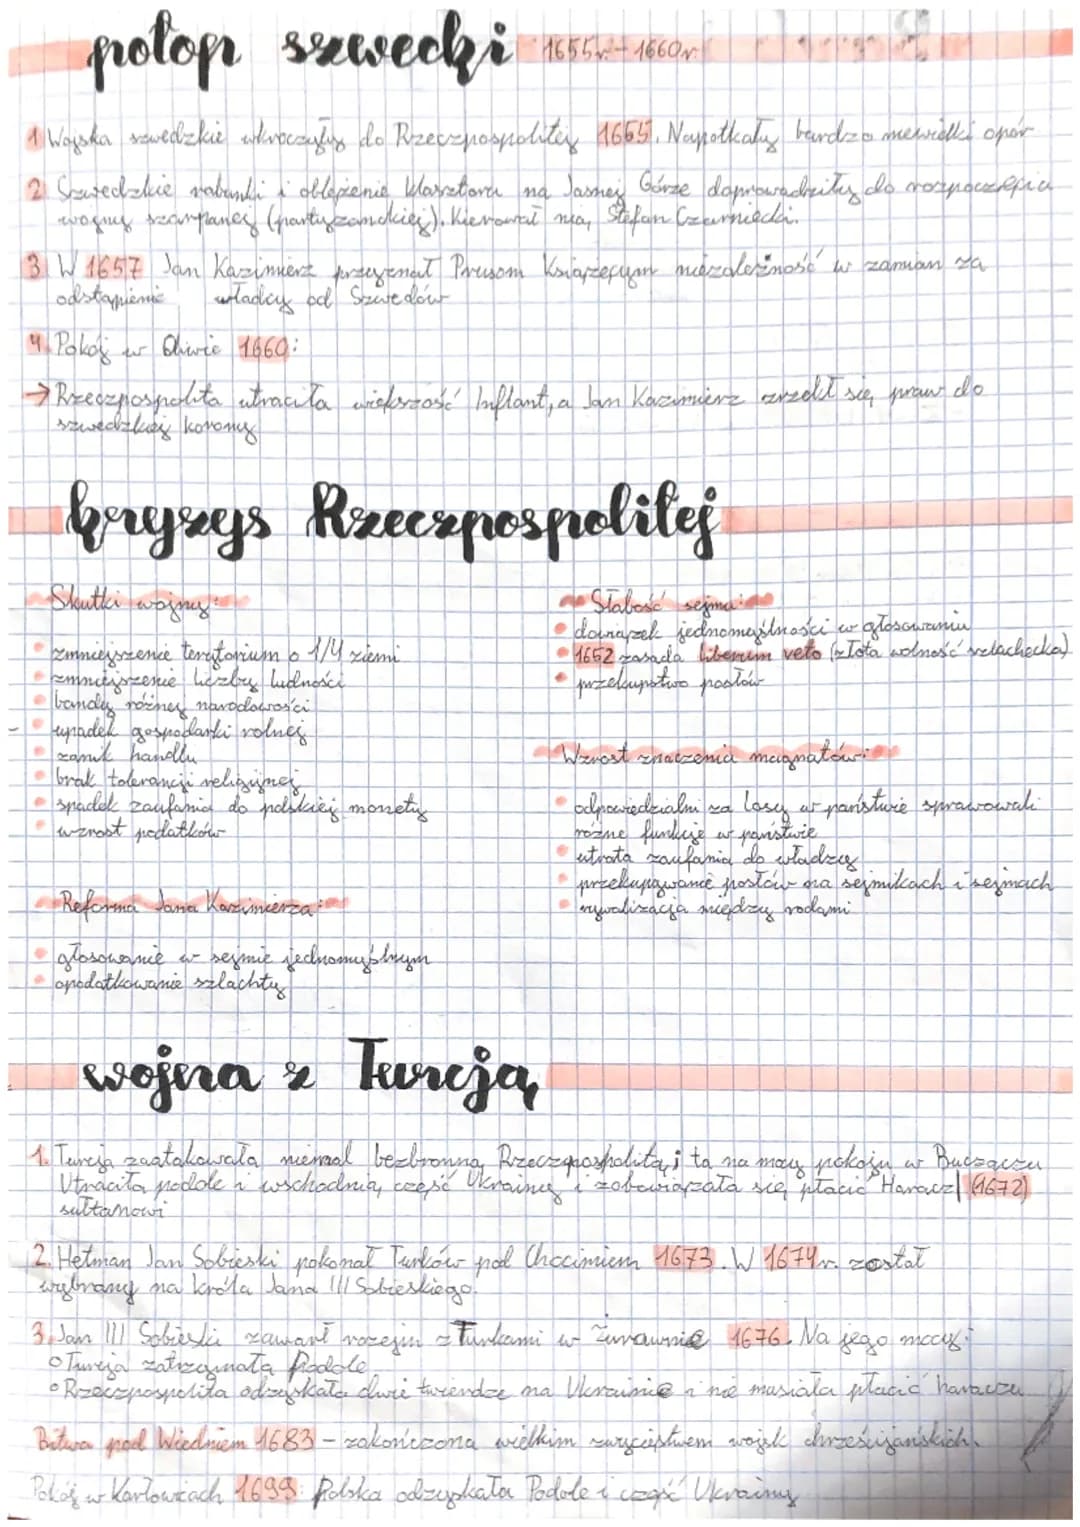 potop szwedzki 1655r. - 1660r.
1 Wojska szwedzkie wkroczyły do Rzeczpospolitej 1655. Napotkały bardzo niewielki opór
2 Szwedzkie rabunki i oblężenie klasztoru na Jasnej Górze doprowadziły do rozpoczęcia
wojny szarpanej (partyzanckiej). Kierował nią Stefan Czarniecki.
3. W 1657 Jan Kazimierz przyznał Prusom Książęcym niezależność w zamian za
odstąpienie władcy od Szwedów
4. Pokój w Oliwie 1660:
→ Rzeczpospolita utraciła większość Inflant, a Jan Kazimierz zrzekł się praw do
szwedzkiej korony
kryzys Rzeczpospolitej
Skutki wojny:
• zmniejszenie terytorium o 1/4 ziemi
• zmniejszenie liczby ludności
• bandy różnej narodowości
• upadek gospodarki rolnej
• zanik handlu
• brak tolerancji religijnej
• spadek zaufania do polskiej monety
• wzrost podatków
Reforma Jana Kazimierza:
• głosowanie w sejmie jednomyślnym
• opodatkowanie szlachty
Słabość sejmu:
• dowiązek jednomyślności w głosowaniu
• 1652 zasada liberum veto (złota wolność szlachecka)
• przekupstwo posłów
Wzrost znaczenia magnatów:
• odpowiedzialni za losy w państwie sprawowali
różne funkcje w państwie
• utrata zaufania do władzy
• przekupywanie posłów na sejmikach i sejmach
• rywalizacja między rodami
wojna z Turcją
1. Turcja zaatakowała niemal bezbronną Rzeczpospolitą i ta na mocy pokoju w Buczaczu
Utraciła podole i wschodnią część Ukrainy i zobowiązała się płacić Haracz (1672)
sułtanowi
2. Hetman Jan Sobieski pokonał Turków pod Chocimiem 1673. W 1674r. został
wybrany na króla Jana III Sobieskiego.
3. Jan III Sobieski zawarł rozejm z Turkami w Żurawnie 1676. Na jego mocy:
o Turcja zatrzymała Podole
o Rzeczpospolita odzyskała dwie twierdze na Ukrainie i nie musiała płacić haraczu
Bitwa pod Wiedniem 1683 - zakończona wielkim zwycięstwem wojsk chrześcijańskich.
Pokój w Karłowicach 1699: Polska odzyskała Podole i część Ukrainy